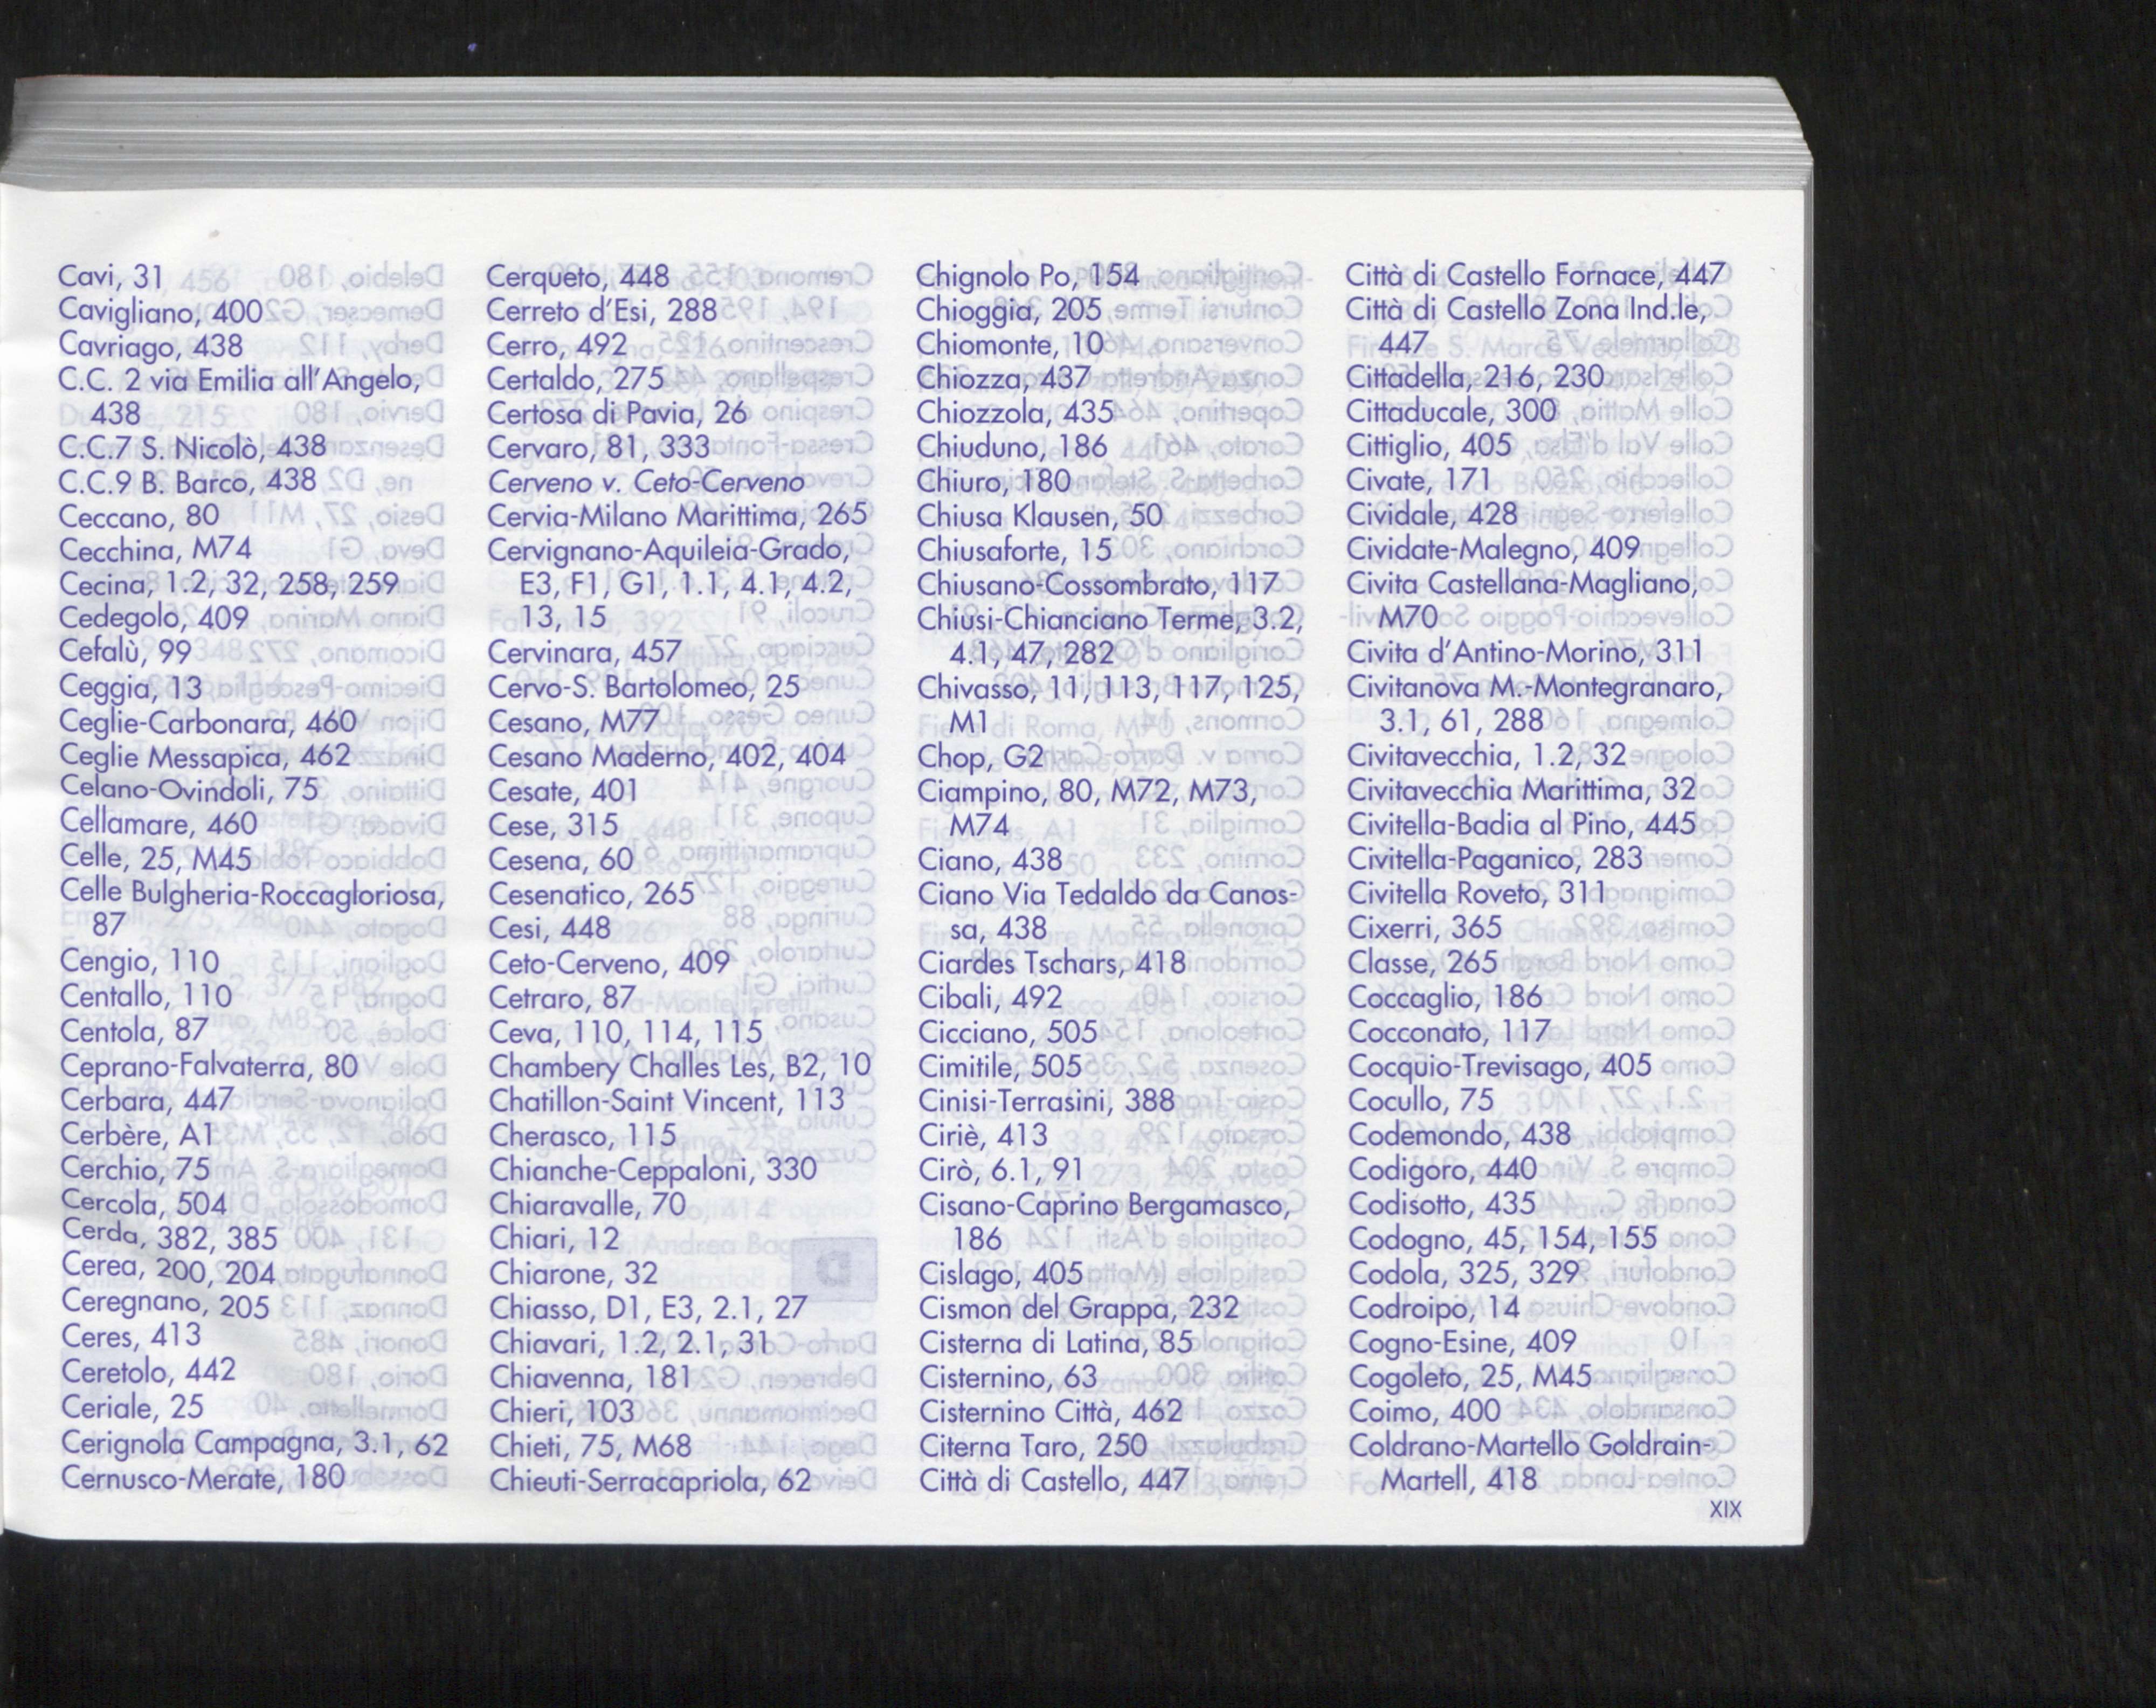 Cavi, 31
Cavigliano, 400
Cavriago, 438
C.C. 2 via Emilia all'Angelo,
438
C.C.7 S. Nicolò, 438
C.C.9 B. Barco, 438
Ceccano, 80
Cecchina, M74
Cecina, 1.2, 32, 258, 259
Cedegolo, 409
Cefalù, 99
Ceggia, 13
Ceglie-Carbonara, 460
Ceglie Messapica, 462
Celano-Ovindoli, 75
Cellamare, 460
Celle, 25, M45
Celle Bulgheria-Roccagloriosa,
87
Cengio, 110
Centallo, 110
Centola, 87
Ceprano-Falvaterra, 80
Cerbara, 447
Cerbère, A1
Cerchio, 75
Cercola, 504
Cerda, 382, 385
Cerea, 200, 204
Ceregnano, 205
Ceres, 413
Ceretolo, 442
Ceriale, 25
Cerignola Campagna, 3.1, 62
Cernusco-Merate, 180
Cerqueto, 448
Cerreto d'Esi, 288
Cerro, 492
Certaldo, 275
Certosa di Pavia, 26
Cervaro, 81, 333
Cerveno v. Ceto-Cerveno
Cervia-Milano Marittima, 265
Cervignano-Aquileia-Grado,
E3, F1, G1, 1.1, 4.1, 4.2,
13, 15
Cervinara, 457
Cervo-S. Bartolomeo, 25
Cesano, M77
Cesano Maderno, 402, 404
Cesate, 401
Cese, 315
Cesena, 60
Cesenatico, 265
Cesi, 448
Ceto-Cerveno, 409
Cetraro, 87
Ceva, 110, 114, 115
Chambery Challes Les, B2, 10
Chatillon-Saint Vincent, 113
Cherasco, 115
Chianche-Ceppaloni, 330
Chiaravalle, 70
Chiari, 12
Chiarone, 32
Chiasso, D1, E3, 2.1, 27
Chiavari, 1.2, 2.1, 31
Chiavenna, 181
Chieri, 103
Chieti, 75, M68
Chieuti-Serracapriola, 62
Chignolo Po, 154
Chioggia, 205
Chiomonte, 10
Chiozza, 437
Chiozzola, 435
Chiuduno, 186
Chiuro, 180
Chiusa Klausen, 50
Chiusaforte, 15
Chiusano-Cossombrato, 117
Chiusi-Chianciano Terme, 3.2,
4.1, 47, 282
Chivasso, 11, 113, 117, 125,
M1
Chop, G2
Ciampino, 80, M72, M73,
M74
Ciano, 438
Ciano Via Tedaldo da Canos-
sa, 438
Ciardes Tschars, 418
Cibali, 492
Cicciano, 505
Cimitile, 505
Cinisi-Terrasini, 388
Ciriè, 413
Cirò, 6.1, 91
Cisano-Caprino Bergamasco,
186
Cislago, 405
Cismon del Grappa, 232
Cisterna di Latina, 85
Cisternino, 63
Cisternino Città, 462
Citerna Taro, 250
Città di Castello, 447
Città di Castello Fornace, 447
Città di Castello Zona Ind.le,
447
Cittadella, 216, 230
Cittaducale, 300
Cittiglio, 405
Civate, 171
Cividale, 428
Cividate-Malegno, 409
Civita Castellana-Magliano,
M70
Civita d'Antino-Morino, 311
Civitanova M.-Montegranaro,
3.1, 61, 288
Civitavecchia, 1.2, 32
Civitavecchia Marittima, 32
Civitella-Badia al Pino, 445
Civitella-Paganico, 283
Civitella Roveto, 311
Cixerri, 365
Classe, 265
Coccaglio, 186
Cocconato, 117
Cocquio-Trevisago, 405
Cocullo, 75
Codemondo, 438
Codigoro, 440
Codisotto, 435
Codogno, 45, 154, 155
Codola, 325, 329
Codroipo, 14
Cogno-Esine, 409
Cogoleto, 25, M45
Coimo, 400
Coldrano-Martello Goldrain-
Martell, 418
XIX